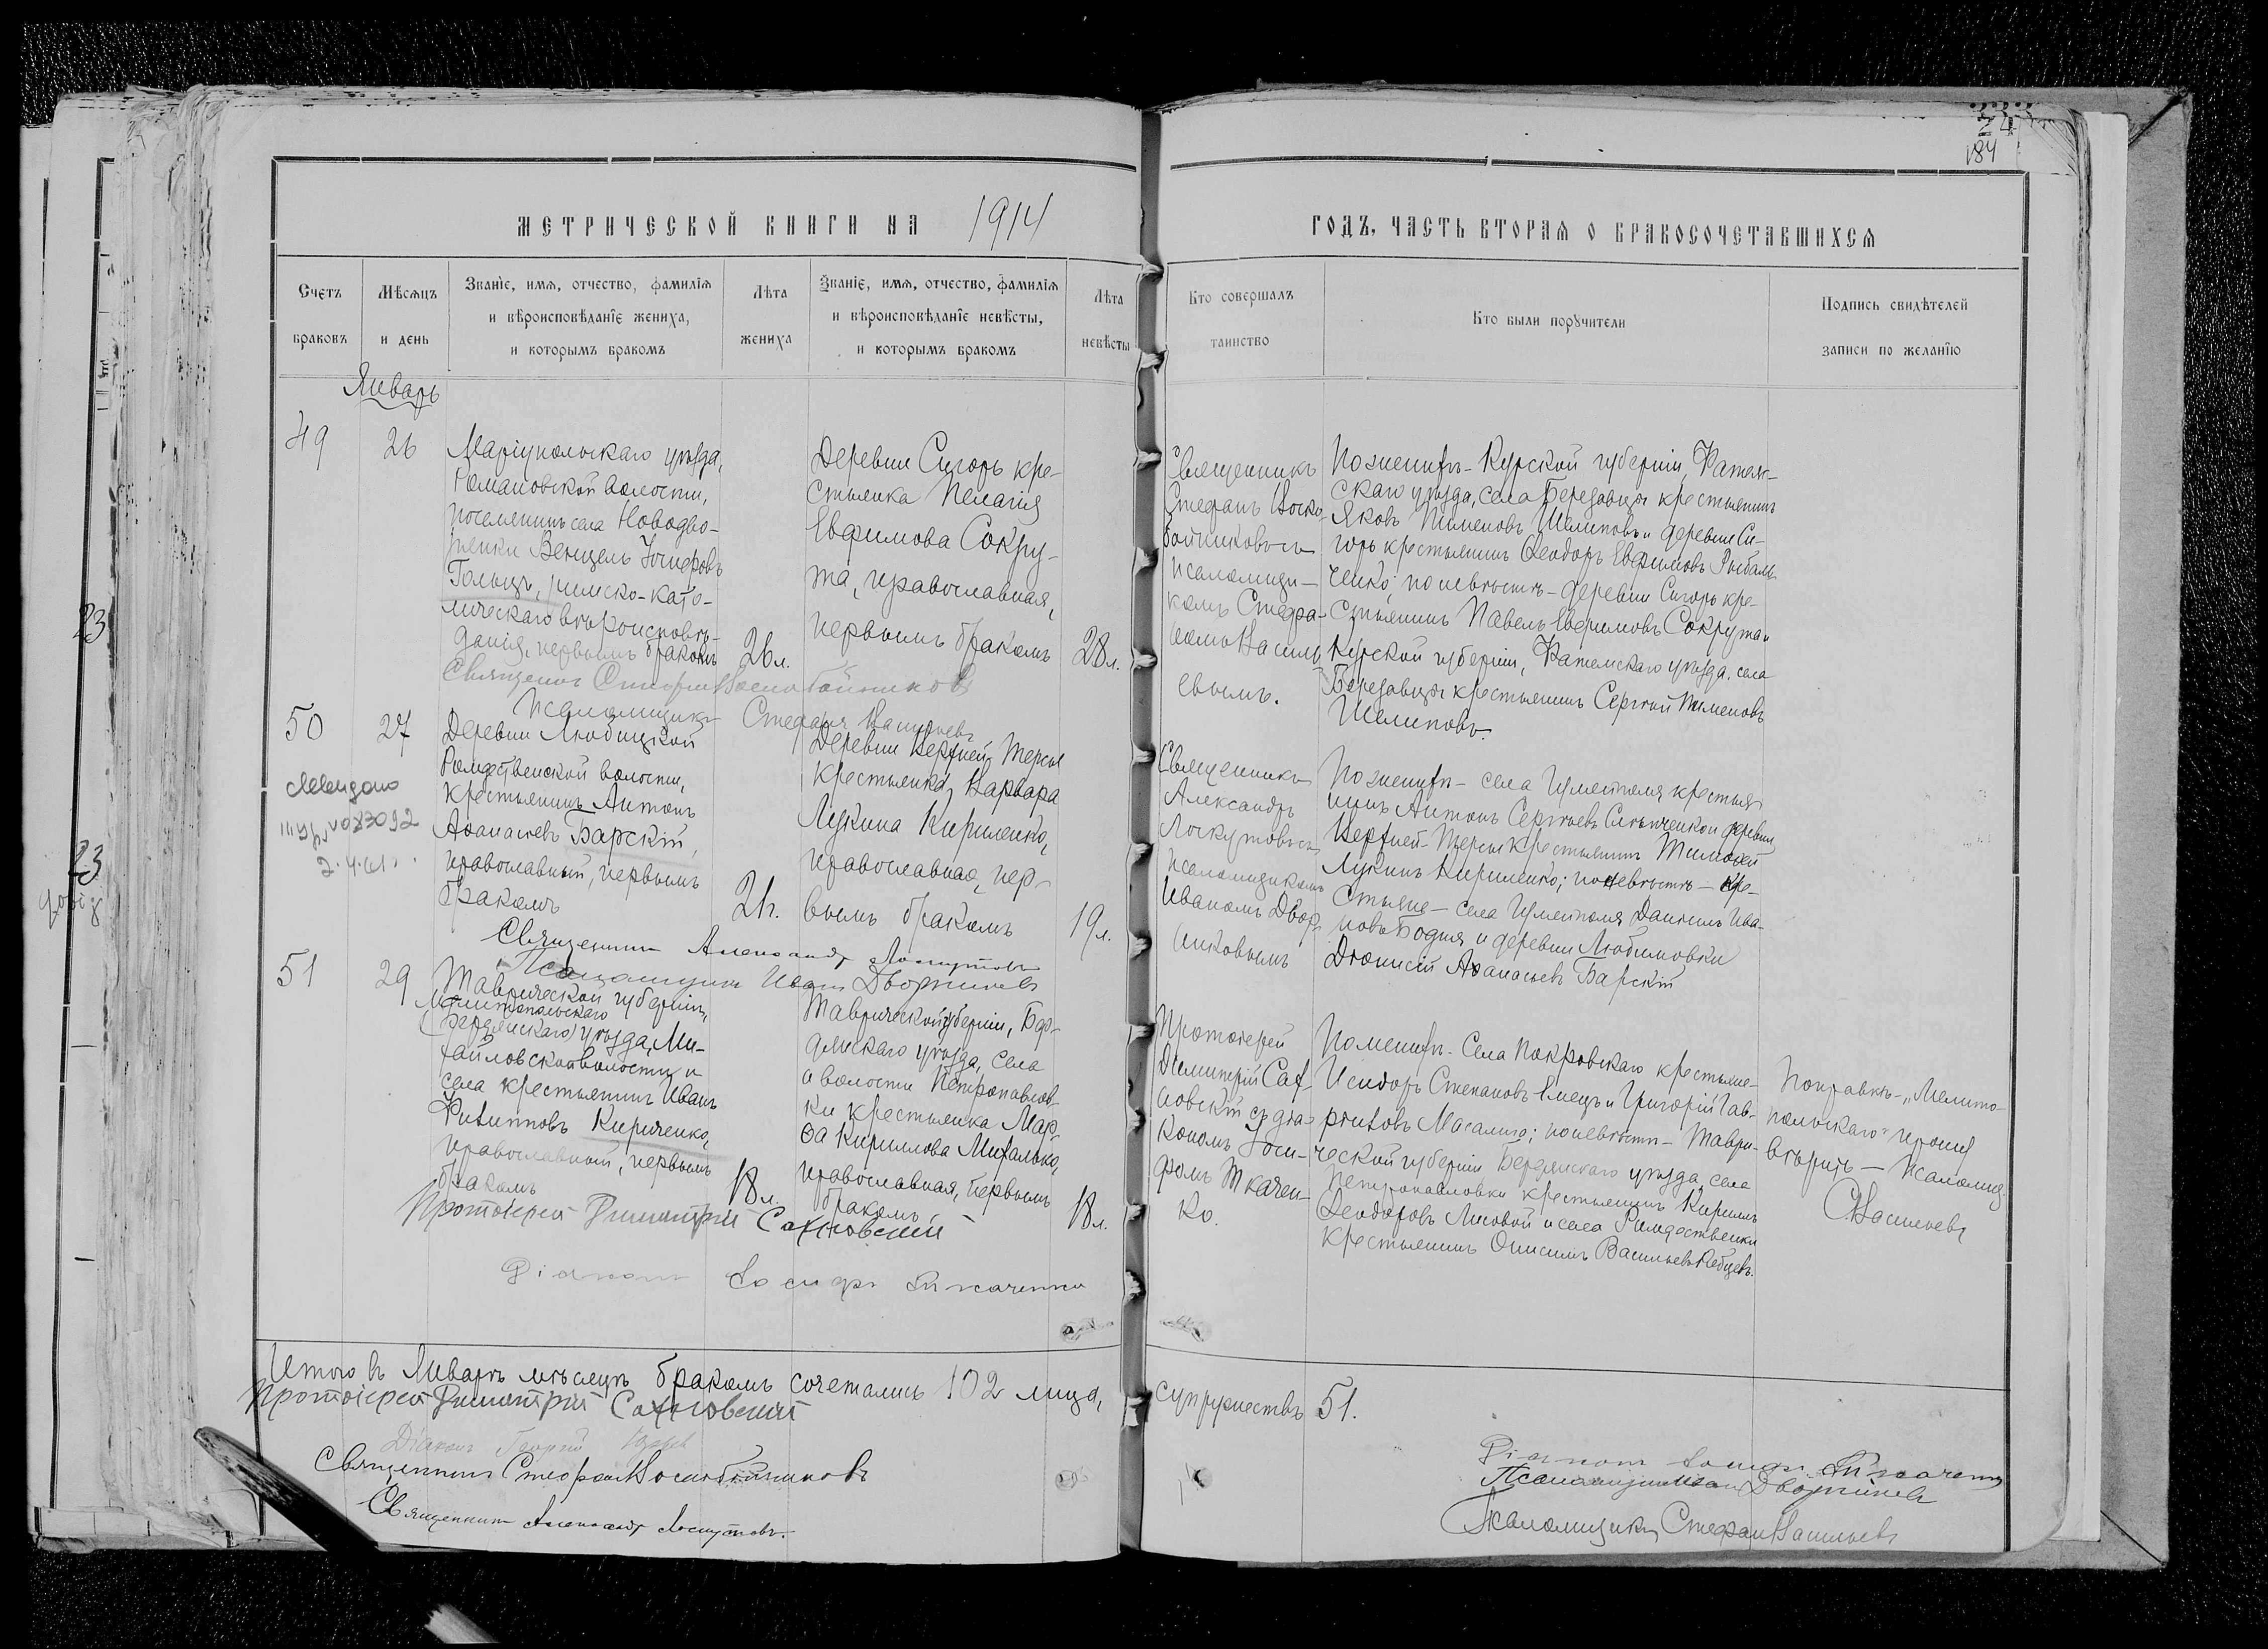 24
184
МЕТРИЧЕСКОЙ КНИГИ НА 1914
ГОДЪ, ЧАСТЬ ВТОРАЯ О БРАКОСОЧЕТАВШИХСЯ
Счетъ браковъ
Мѣсяцъ и день
Званіе, имя, отчество, фамилія
и вѣроисповѣданіе жениха,
и которымъ бракомъ
Лѣта жениха
Званіе, имя, отчество, фамилія
и вѣроисповѣданіе невѣсты,
и которымъ бракомъ
Лѣта невѣсты
Кто совершалъ таинство
Кто были поручители
Подпись свидѣтелей
записи по желанію
Январь
49
26
Маріупольскаго уѣзда,
Романовской волости,
поселянинъ села Новодво-
рянки Венцель Іосифовъ
Гольцъ, римско-като-
лическаго вѣроисповѣ-
данія, первымъ бракомъ
26 л.
Деревни Сугоръ кре-
стьянка Пелагія
Евфимова Сокру-
та, православная,
первымъ бракомъ
28 л.
Священникъ
Стефанъ Воско-
бойниковъ съ
псаломщи-
комъ Стефа-
номъ Василь
евымъ.
По женихѣ - Курской губерніи, Фатеж-
скаго уѣзда, села Березовца крестьянинъ
Яковъ Пименовъ Шелиповъ и деревни Су-
горъ крестьянинъ Ѳеодоръ Евфимовъ Рыбаль-
ченко; по невѣстѣ - деревни Сугоръ кре-
стьянинъ Павелъ Евфимовъ Сокрута и
Курской губерніи, Фатежскаго уѣзда, села
Березовца крестьянинъ Сергій Пименовъ
Шелиповъ.
Священникъ Стефанъ Воскобойниковъ
Псаломщикъ Стефанъ Васильевъ
50
27
2.4.61.
Деревни Любицкой
Рождественской волости,
крестьянинъ Антонъ
Аѳанасьевъ Барскій,
православный, первымъ
бракомъ
21 л.
Деревни Верхней Терсы
крестьянка Варвара
Лукина Кириленко,
православная, пер-
вымъ бракомъ
19 л.
Священникъ
Александръ
Лоскутовъ съ
псаломщикомъ
Иваномъ Двор-
никовымъ
По женихѣ - села Гуляйполя крестья-
нинъ Антонъ Сергѣевъ и деревни
Верхней-Терсы крестьянинъ Тимоѳей
Лукинъ Кириленко; по невѣстѣ - кре-
стьяне - села Гуляйполя Даніилъ Ива-
новъ Бодня и деревни Любимовки
Діонисій Аѳанасьевъ Барскій
Священникъ Александръ Лоскутовъ
Псаломщикъ Иванъ Дворниковъ
51
29
Таврической губерніи,
Мелитопольскаго
(Бердянскаго) уѣзда, Ми-
хайловской волости и
села крестьянинъ Иванъ
Филипповъ Кириченко,
православный, первымъ
бракомъ
18 л.
Таврической губерніи, Бер-
дянскаго уѣзда, села
и волости Петропавлов-
ки крестьянка Мар-
ѳа Кириллова Михалько,
православная, первымъ
бракомъ
18 л.
Протоіерей
Димитрій Сах-
новскій съ діа-
кономъ Іоси-
фомъ Ткачен-
ко.
По женихѣ - Села Покровскаго крестьяне-
Исидоръ Степановъ Емецъ и Григорій Гав-
ріиловъ Масалыго; по невѣстѣ - Таври-
ческой губерніи Бердянскаго уѣзда, села
Петропавловки крестьянинъ Кириллъ
Ѳеодоровъ Лисовой и села Рождественки
крестьянинъ Онисимъ Васильевъ
Поправкѣ - „Мелито-
польскаго" прошу
вѣрить - Псаломщ.
С. Васильевъ
Протоіерей Димитрій Сахновскій
Діаконъ Іосифъ Ткаченко
Итого въ Январѣ мѣсяцѣ бракомъ сочетались 102 лица,
супружествъ 51.
Протоіерей Димитрій Сахновскій
Діаконъ Георгій
Священникъ Стефанъ Воскобойниковъ
Священникъ Александръ Лоскутовъ.
Діаконъ Іосифъ Ткаченко
Псаломщикъ Иванъ Дворниковъ
Псаломщикъ Стефанъ Васильевъ
23
23